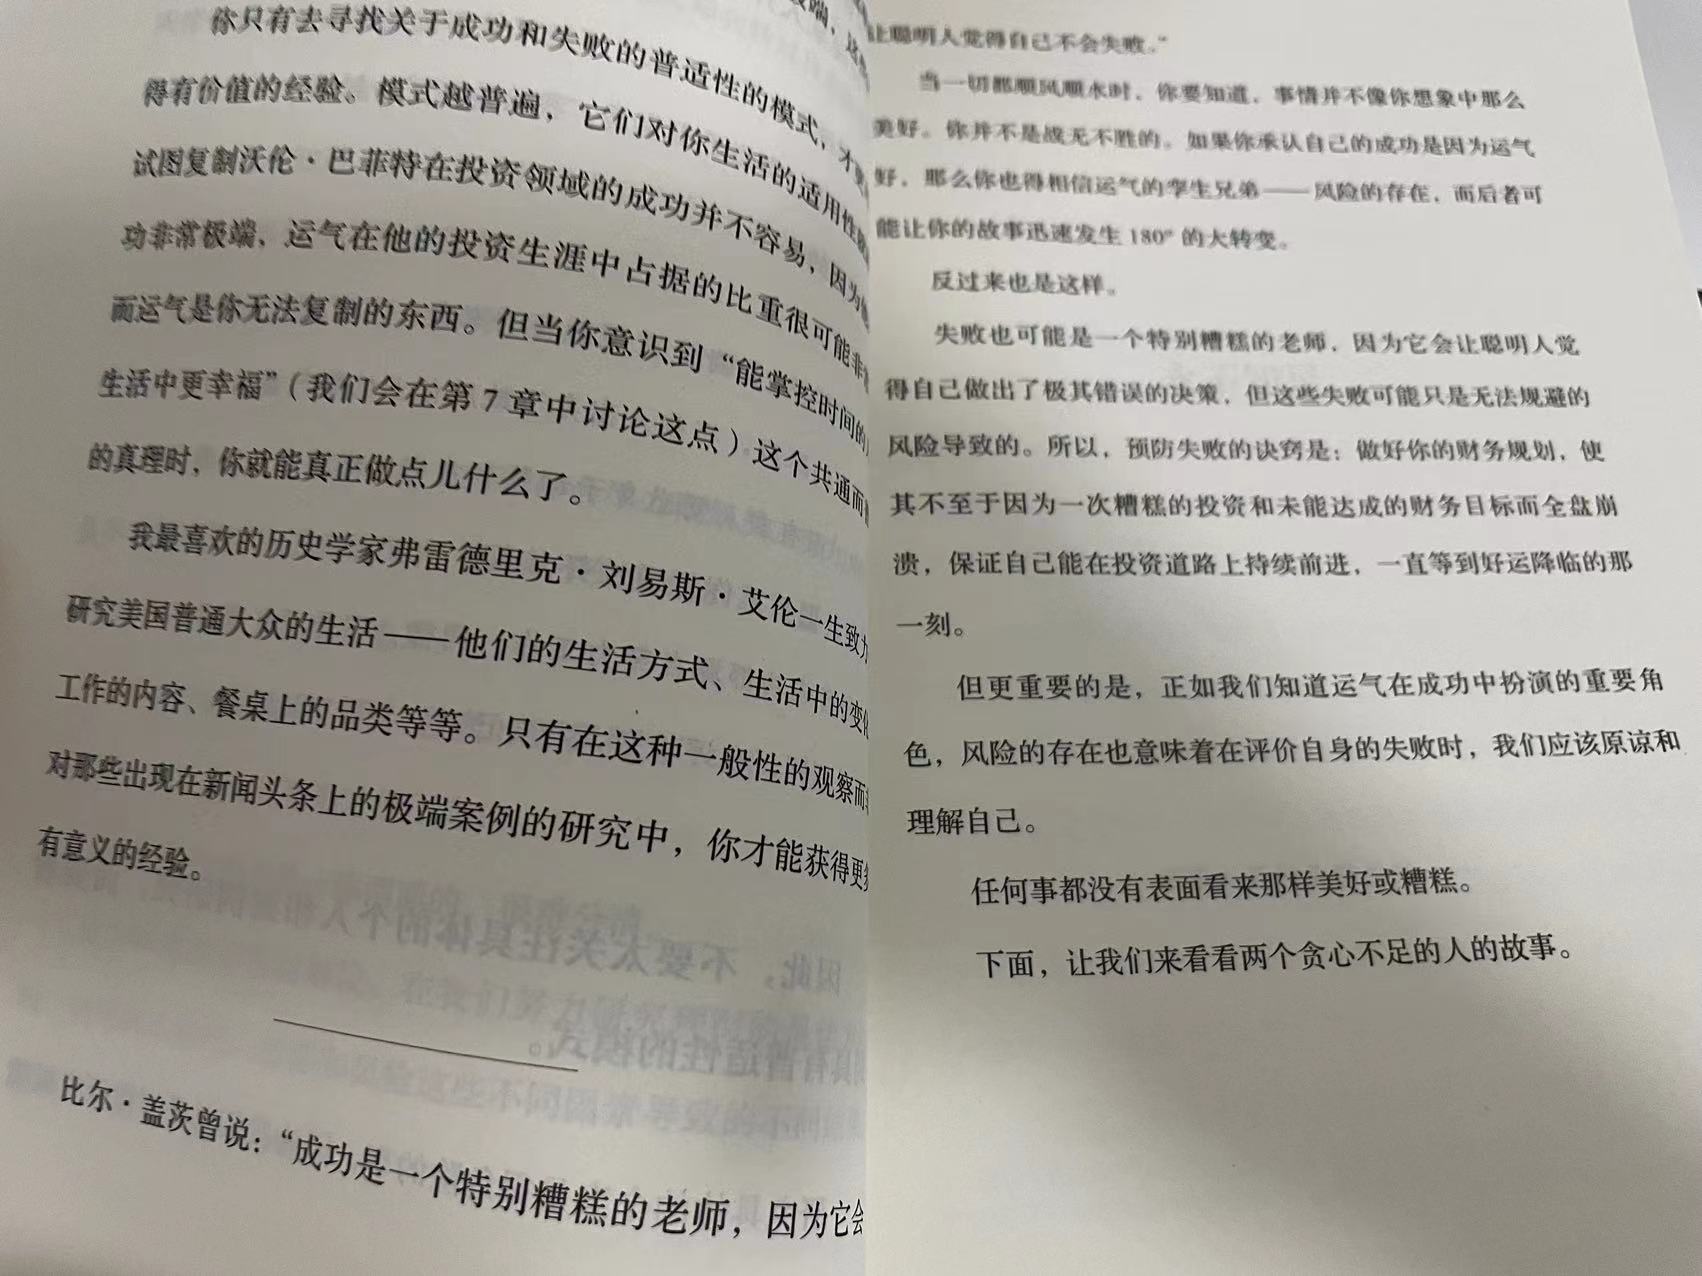 你只有去寻找关于成功和失败的普适性的模式，才
得有价值的经验。模式越普遍，它们对你生活的适用性
试图复制沃伦·巴菲特在投资领域的成功并不容易，因为
功非常极端，运气在他的投资生涯中占据的比重很可能非
而运气是你无法复制的东西。但当你意识到“能掌控时间的
生活中更幸福”（我们会在第7章中讨论这点）这个共通而
的真理时，你就能真正做点儿什么了。
我最喜欢的历史学家弗雷德里克·刘易斯·艾伦一生致力
研究美国普通大众的生活——他们的生活方式、生活中的变化
工作的内容、餐桌上的品类等等。只有在这种一般性的观察而
对那些出现在新闻头条上的极端案例的研究中，你才能获得更
有意义的经验。
比尔·盖茨曾说：“成功是一个特别糟糕的老师，因为它会
让聪明人觉得自己不会失败。”
当一切都顺风顺水时，你要知道，事情并不像你想象中那么
美好。你并不是战无不胜的。如果你承认自己的成功是因为运气
好，那么你也得相信运气的孪生兄弟——风险的存在，而后者可
能让你的故事迅速发生180°的大转变。
反过来也是这样。
失败也可能是一个特别糟糕的老师，因为它会让聪明人觉
得自己做出了极其错误的决策，但这些失败可能只是无法规避的
风险导致的。所以，预防失败的诀窍是：做好你的财务规划，使
其不至于因为一次糟糕的投资和未能达成的财务目标而全盘崩
溃，保证自己能在投资道路上持续前进，一直等到好运降临的那
一刻。
但更重要的是，正如我们知道运气在成功中扮演的重要角
色，风险的存在也意味着在评价自身的失败时，我们应该原谅和
理解自己。
任何事都没有表面看来那样美好或糟糕。
下面，让我们来看看两个贪心不足的人的故事。